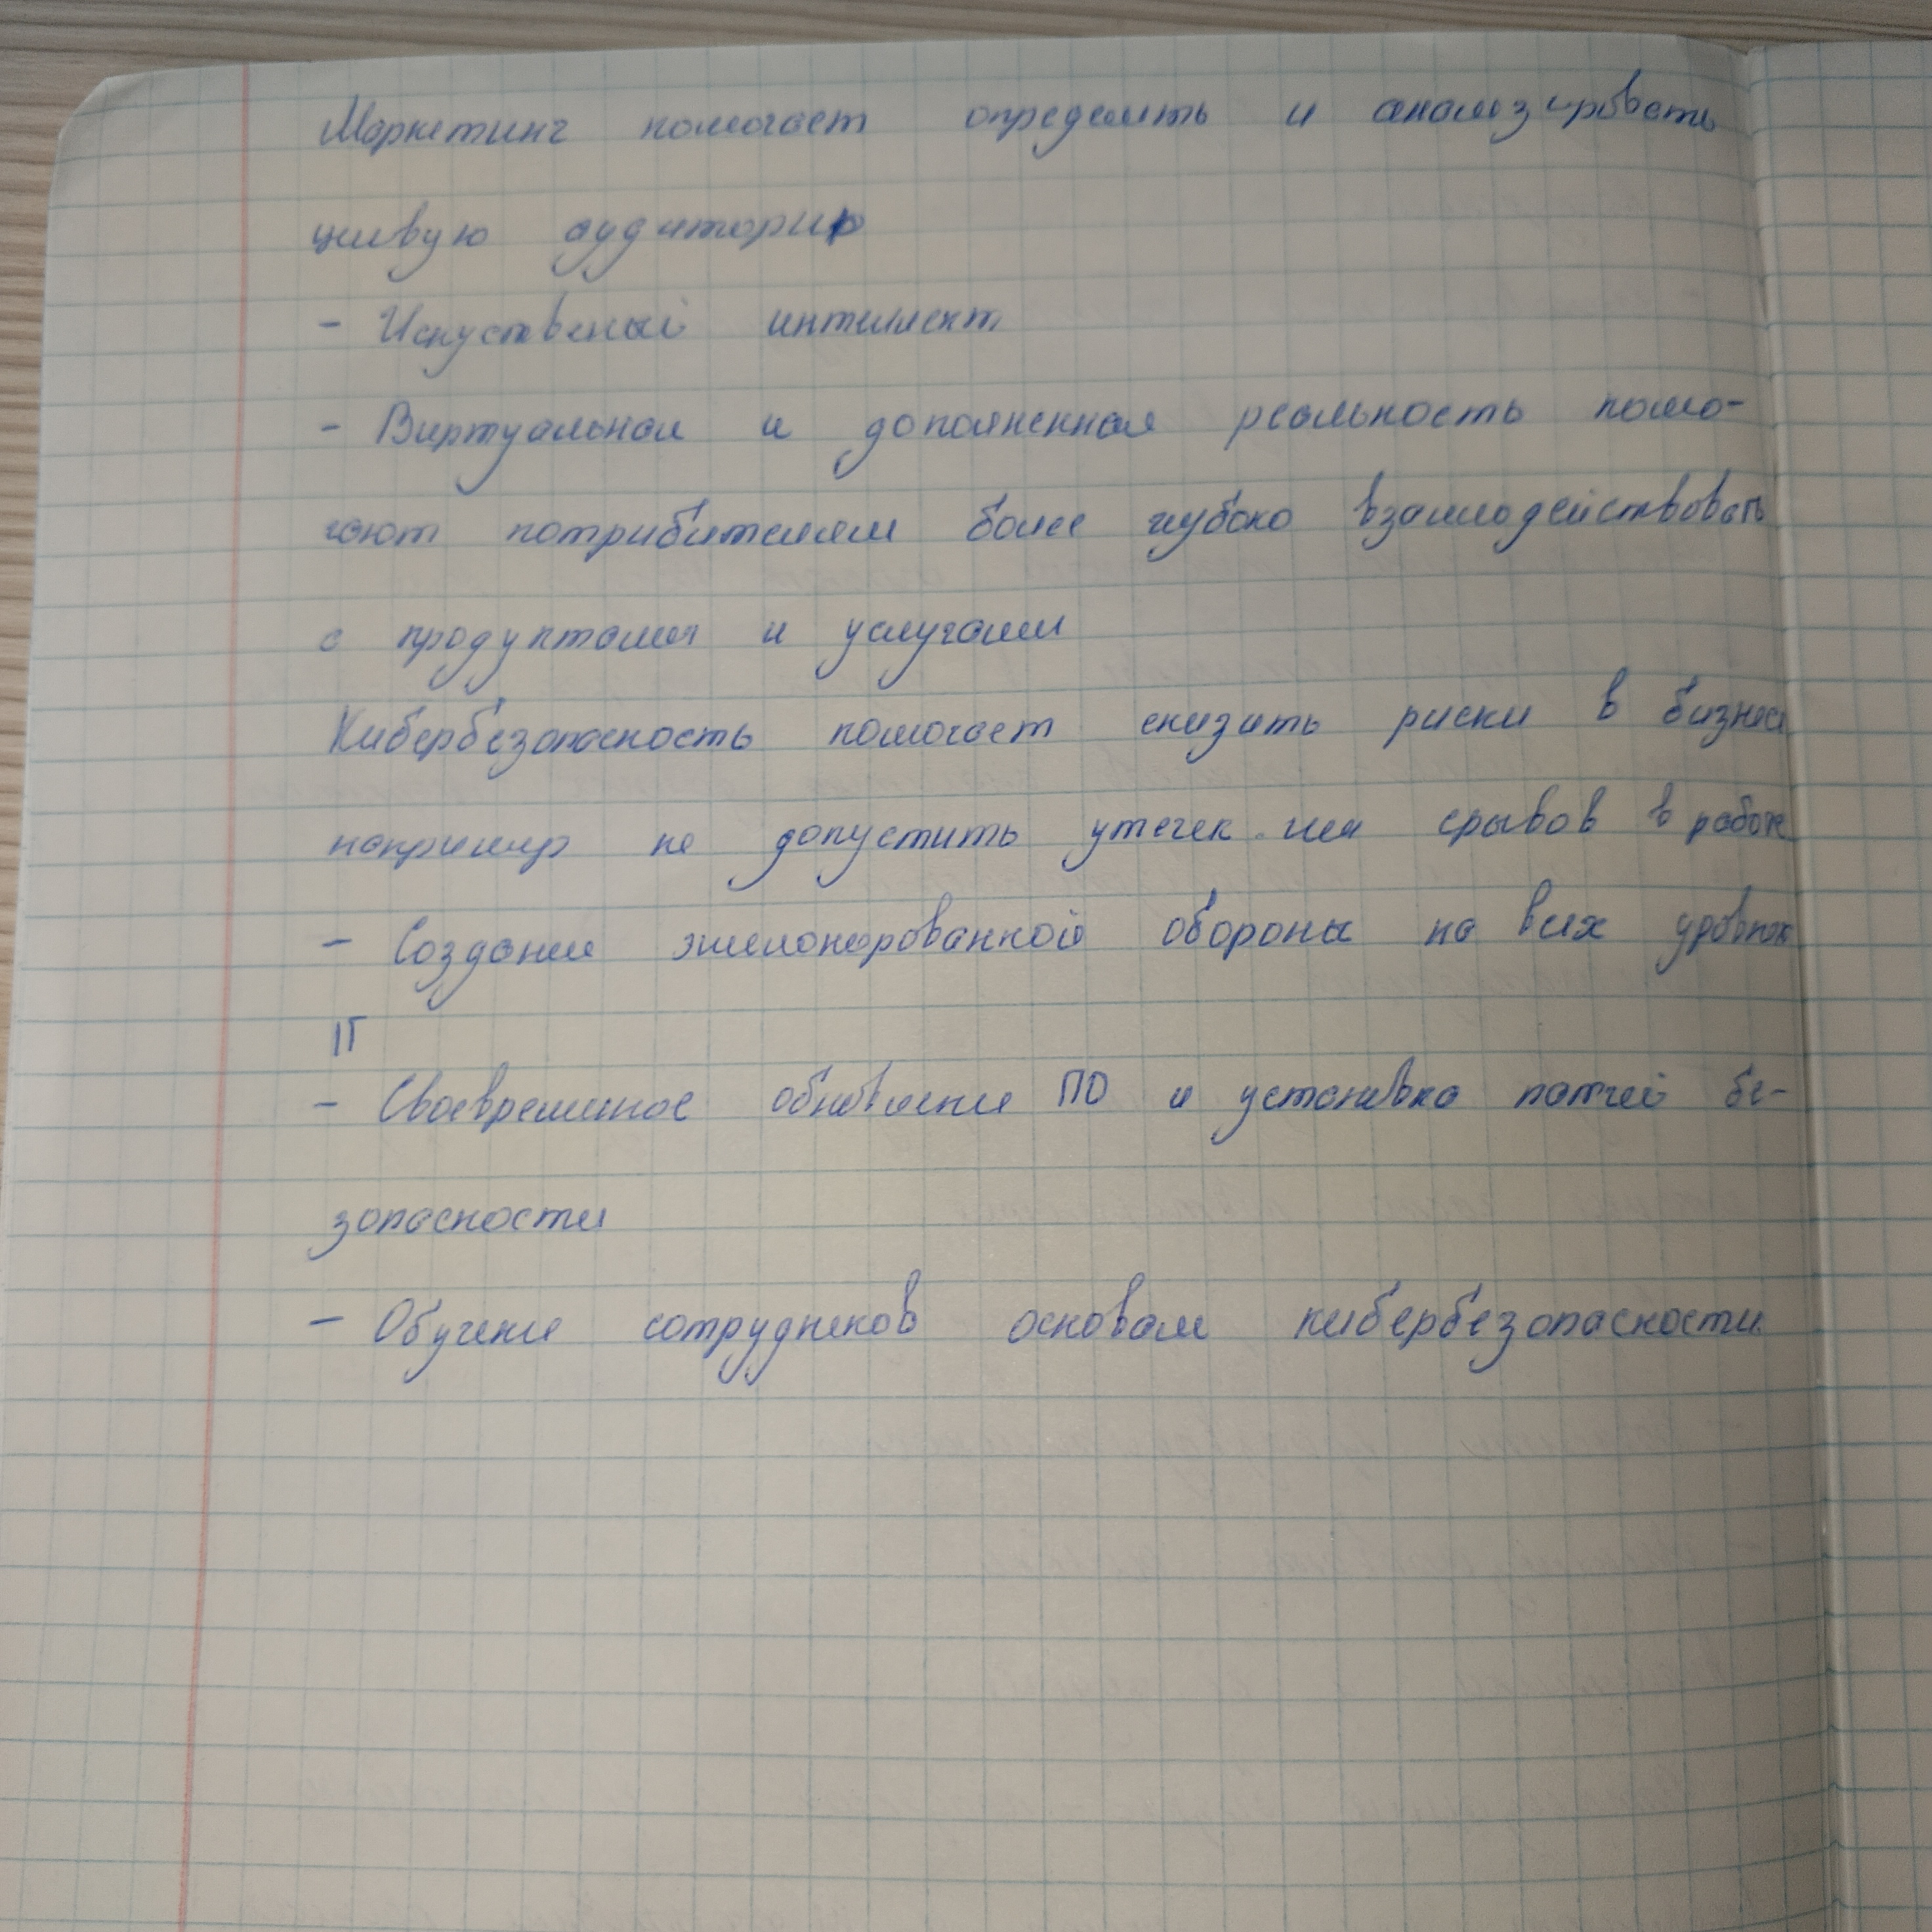 Маркетинг помогает определить и анализировать
целевую аудиторию
- Искуственый интиллект
- Виртуальная и дополненная реальность помо-
гают потрибителям более глубоко взаимодействовать
с продуктами и услугами
Кибербезопасность помогает снизить риски в бизнесе
например не допустить утечек или срывов в работе
- Создание эшелонированной обороны на всех уровнях
IT
- Своевременное обновление ПО и установка патчей бе-
зопасности
- Обучение сотрудников основам кибербезопасности